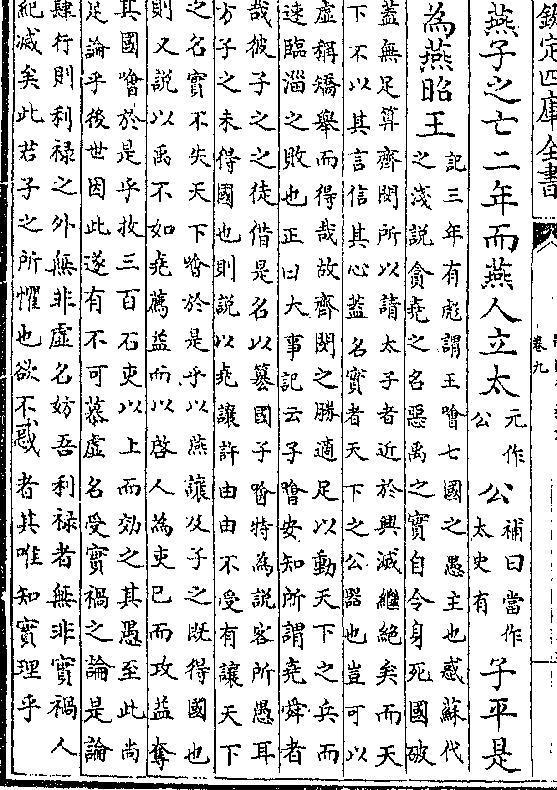 欽定四庫全書
卷九
燕子之亡二年而燕人立太元作公公補曰當作太史有子平是
為燕昭王記三年有彪謂王噲七國之愚主也惑蘇代
之淺説貪堯之名惡禹之實自令身死國破
蓋無足算齊閔所以請太子者近於興滅繼絶矣而天
下不以其言信其心蓋名實者天下之公器也豈可以
虚稱矯舉而得哉故齊閔之勝適足以動天下之兵而
速臨淄之敗也正曰大事記云子噲安知所謂堯舜者
哉彼子之之徒借是名以簒國子噲特為説客所愚耳
方子之未得國也則説以堯讓許由由不受有讓天下
之名實不失天下噲於是乎以燕讓及子之既得國也
則又説以禹不如堯薦益而以啓人為吏已而攻益奪
其國噲於是乎收三百石吏以上而効之其愚至此尚
足論乎後世因此遂有不可慕虚名受實禍之論是論
肆行則利祿之外無非虚名妨吾利祿者無非實禍人
紀滅矣此君子之所懼也欲不惑者其唯知實理乎